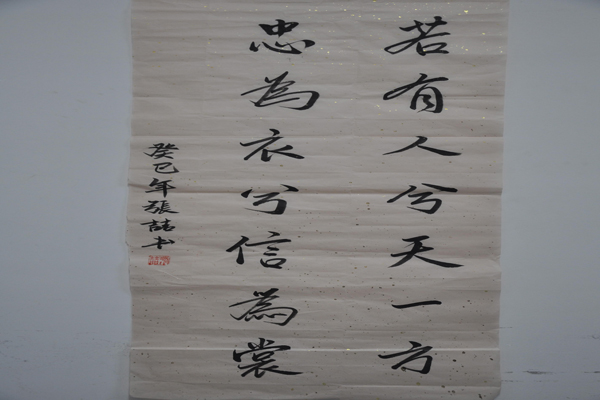 若有人兮天一方
忠為衣兮信為裳
癸巳年張喆书